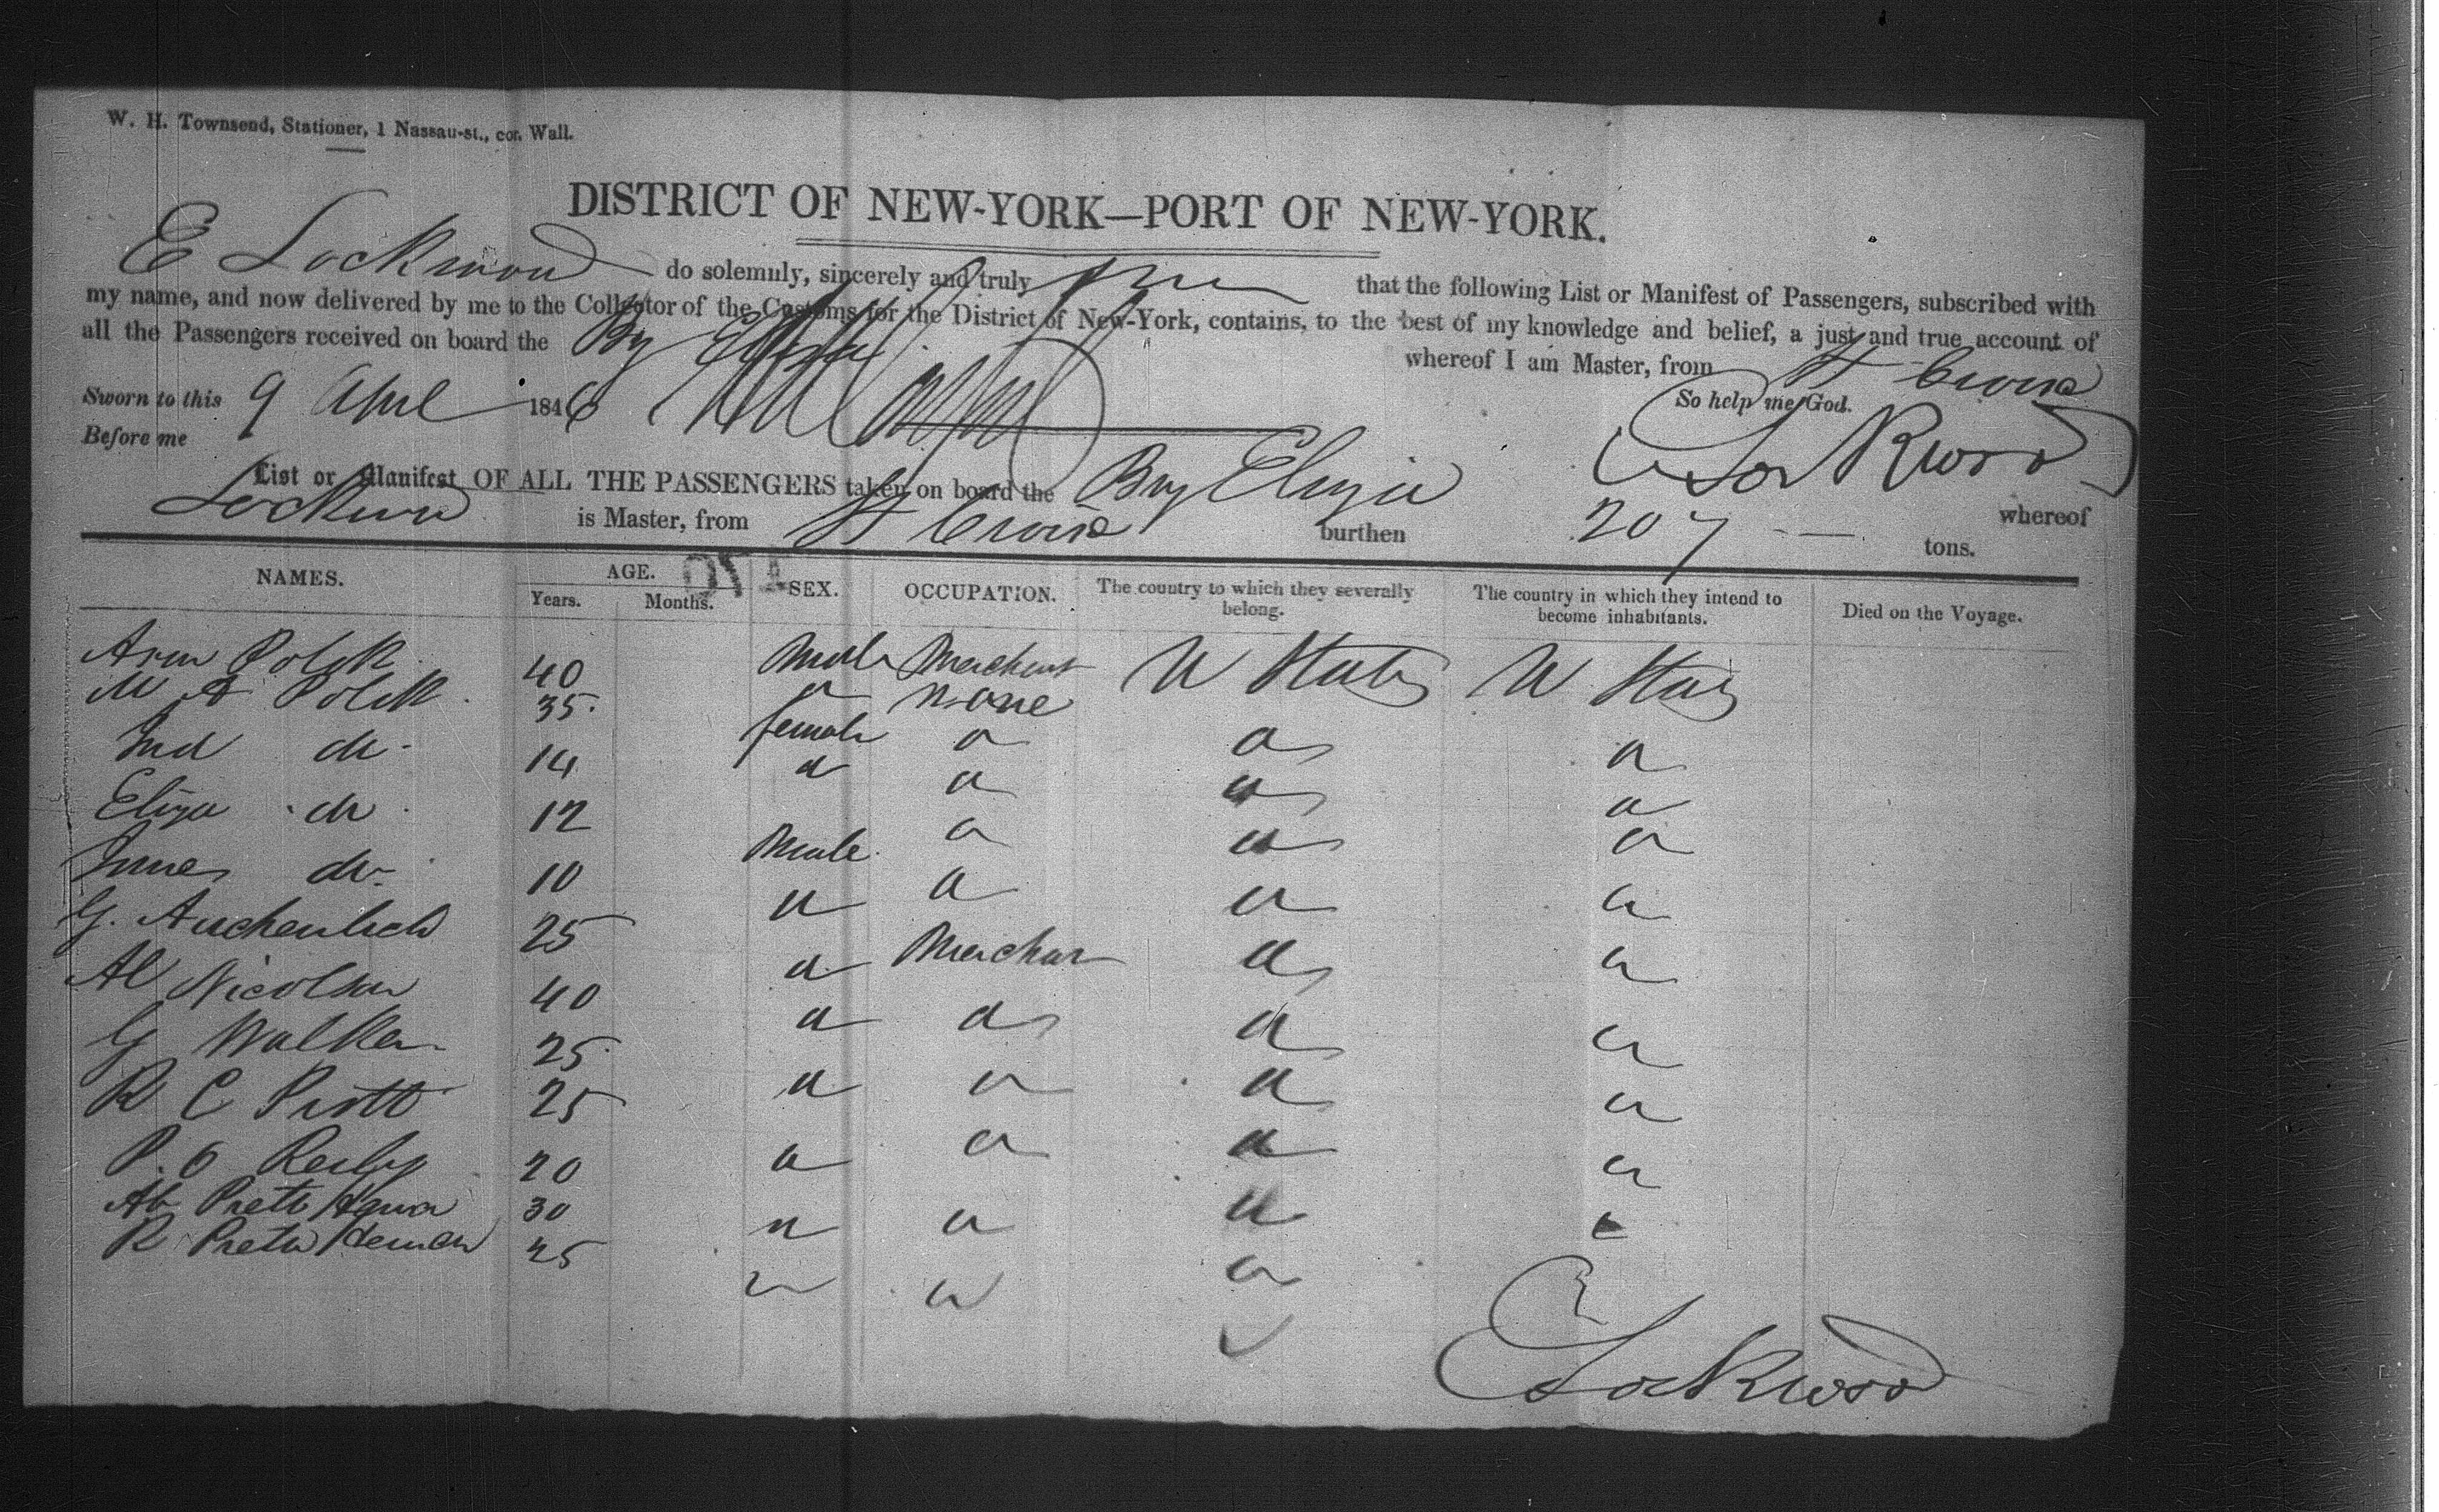 W. H. Townsend, Stationer, 1 Nassau-st., cor. Wall.
DISTRICT OF NEW-YORK—PORT OF NEW-YORK.
E Lockwood do solemnly, sincerely and truly that the following List or Manifest of Passengers, subscribed with
my name, and now delivered by me to the Collector of the Customs for the District of New-York, contains, to the best of my knowledge and belief, a just and true account of
all the Passengers received on board the Brig Eliza whereof I am Master, from St Croix
Sworn to this 9 April 1846 So help me God.
Before me E Lockwood
List or Manifest OF ALL THE PASSENGERS taken on board the Brig Eliza whereof
Lockwood is Master, from St Croix burthen 207 tons.
NAMES. AGE. SEX. OCCUPATION. The country to which they severally belong. The country in which they intend to become inhabitants. Died on the Voyage.
Years. Months.
40 Male Merchant U States U States
M A 35 " None
do 14 female " " "
Eliza do 12 " " " "
do 10 Male " " "
G. 25 " " " "
Al Nicolson 40 " Merchant " "
G Walker 25 " " " "
R C 25 " " " "
P. O Reily 20 " " " "
30 " " " "
R 25 " " "
E Lockwood